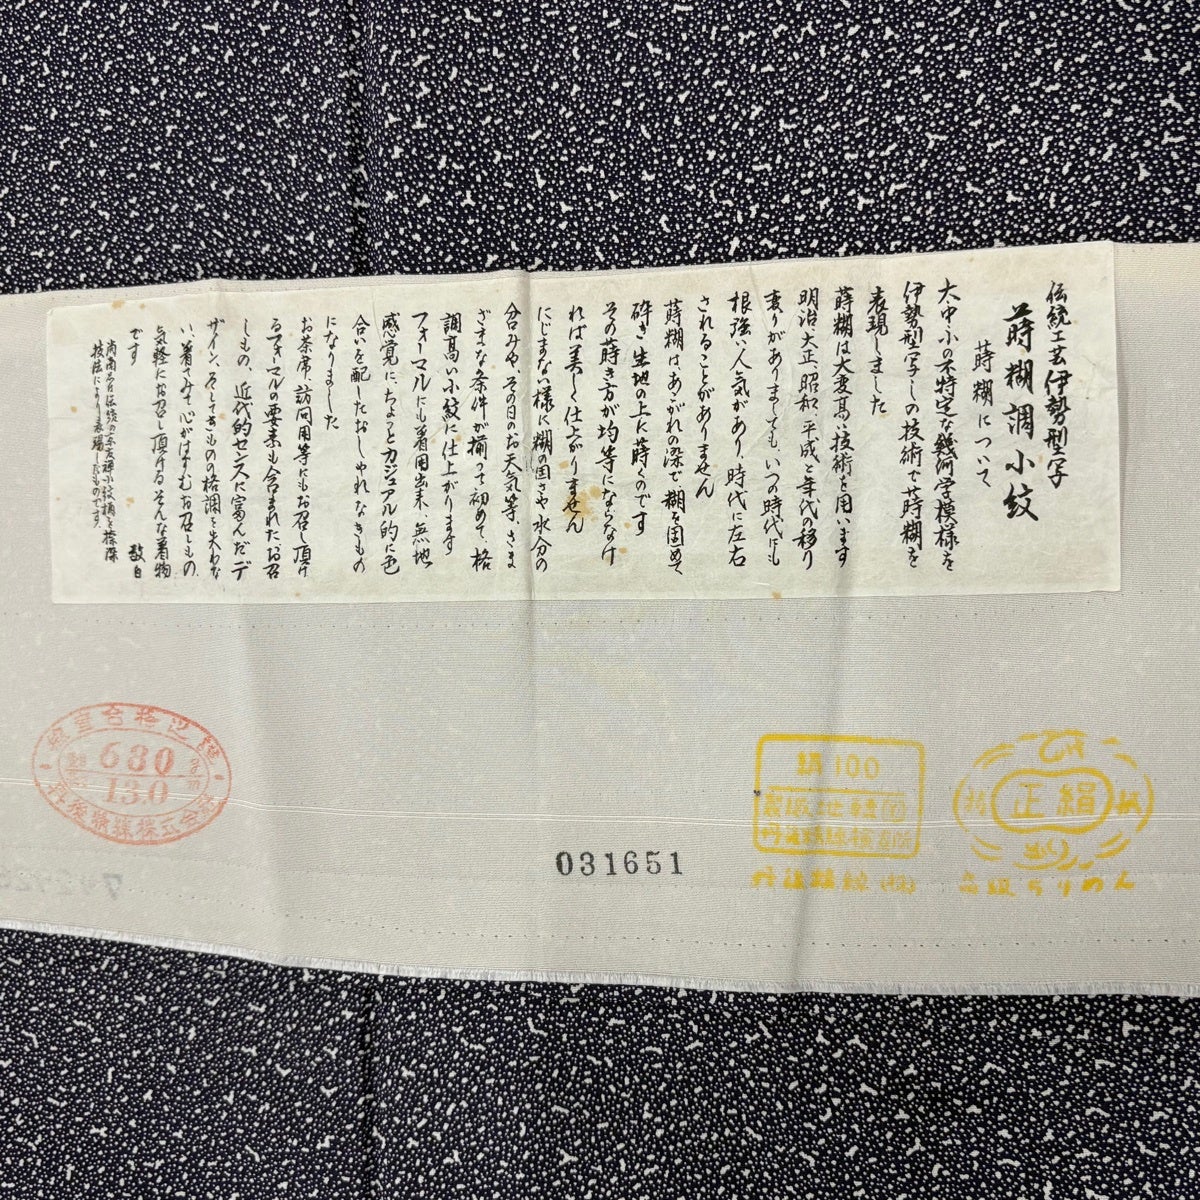 伝統工芸伊勢型写
蒔糊調小紋
蒔糊について
大中小の不特定な幾何学模様を
伊勢型写しの技術で蒔糊を
表現しました
蒔糊は大変高い技術を用います
明治、大正、昭和、平成と年代の移り
変りがありましても、いつの時代でも
根強い人気があり、時代に左右
されることがありません
蒔糊はあこがれの染で糊を固めて
砕き生地の上に蒔くのです
その蒔き方が均等にならなけ
れば美しく仕上がりません
にじまない様に糊の固さや水分の
分匀みや、その日のお天気等、さま
ざまな条件が揃って初めて、格
調高い小紋に仕上がります
フォーマルにも着用出来、無地
感覚に、ちょっとカジュアル的に色
合いを配したおしゃれなきもの
になりました
お茶席、訪問用等にもお召し頂け
るフォーマルの要素も含まれたお召
しもの、近代的センスに富んだデ
ザイン、そしてきものの格調を失わな
い着ごこち、心がはずむお召しもの、
気軽にお召し頂けるそんな着物
です
敬白
技法により表現したものです。
680
13.0
丹後織物株式会社
絹100
031651
正絹
高級ちりめん